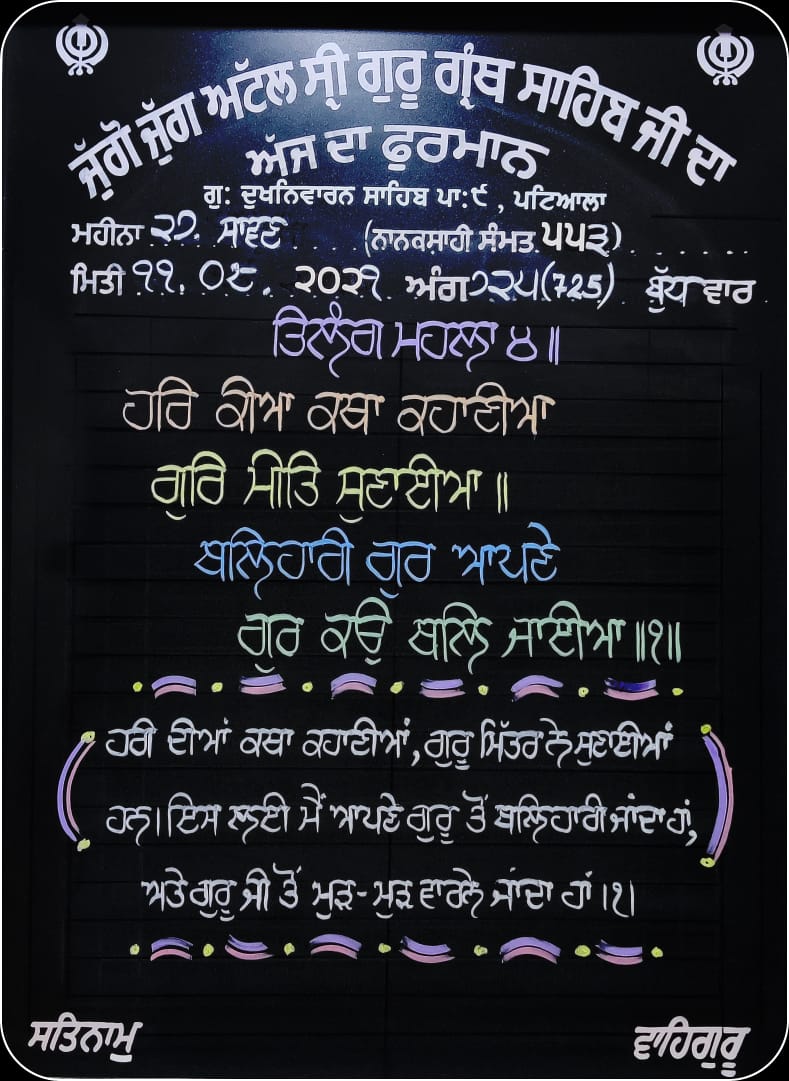 ਜੁੱਗੋ ਜੁੱਗ ਅਟੱਲ ਸ੍ਰੀ ਗੁਰੂ ਗ੍ਰੰਥ ਸਾਹਿਬ ਜੀ ਦਾ
ਅੱਜ ਦਾ ਫੁਰਮਾਨ
ਗੁ: ਦੁਖਨਿਵਾਰਨ ਸਾਹਿਬ ਪਾ:੯ , ਪਟਿਆਲਾ
ਮਹੀਨਾ ੨੭. ਸਾਵਣ (ਨਾਨਕਸ਼ਾਹੀ ਸੰਮਤ ੫੫੩)
ਮਿਤੀ ੧੧. ੦੮. ੨੦੨੧ ਅੰਗ ੭੨੫(725) ਬੁੱਧ ਵਾਰ
ਤਿਲੰਗ ਮਹਲਾ ੪॥
ਹਰਿ ਕੀਆ ਕਥਾ ਕਹਾਣੀਆ
ਗੁਰਿ ਮੀਤਿ ਸੁਣਾਈਆ ॥
ਬਲਿਹਾਰੀ ਗੁਰ ਆਪਣੇ
ਗੁਰ ਕਉ ਬਲਿ ਜਾਈਆ ॥੧॥
ਹਰੀ ਦੀਆਂ ਕਥਾ ਕਹਾਣੀਆਂ, ਗੁਰੂ ਮਿੱਤਰ ਨੇ ਸੁਣਾਈਆਂ
ਹਨ। ਇਸ ਲਈ ਮੈਂ ਆਪਣੇ ਗੁਰੂ ਤੋਂ ਬਲਿਹਾਰੀ ਜਾਂਦਾ ਹਾਂ,
ਅਤੇ ਗੁਰੂ ਜੀ ਤੋਂ ਮੁੜ-ਮੁੜ ਵਾਰਨੇ ਜਾਂਦਾ ਹਾਂ ।੧।
ਸਤਿਨਾਮੁ ਵਾਹਿਗੁਰੂ